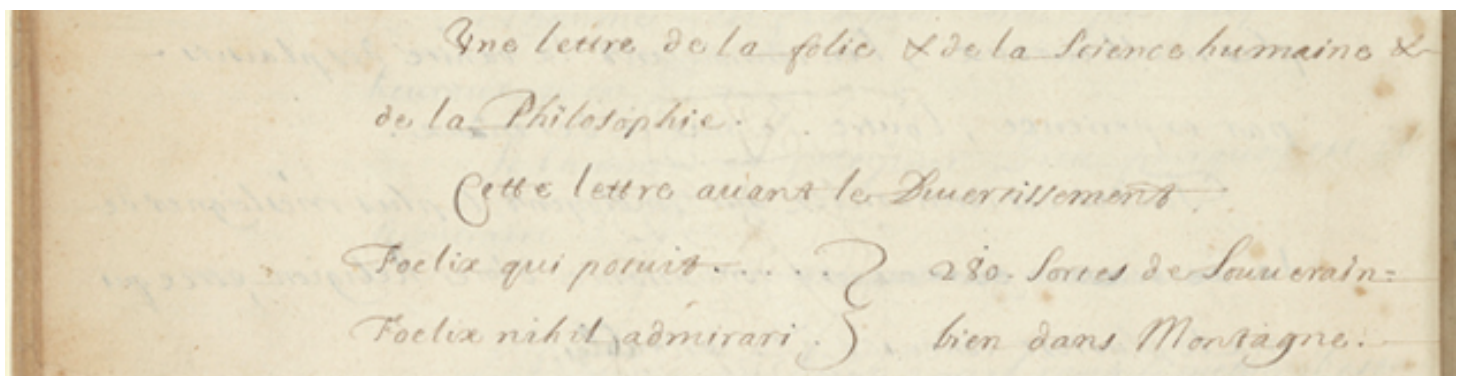 Une lettre de la folie & de la science humaine &
de la Philosophie.
Cette lettre auant le Diuertissement.
Foelix qui potuit.... } 280. sortes de souuerain=
Foelix nihil admirari. } bien dans Montagne.